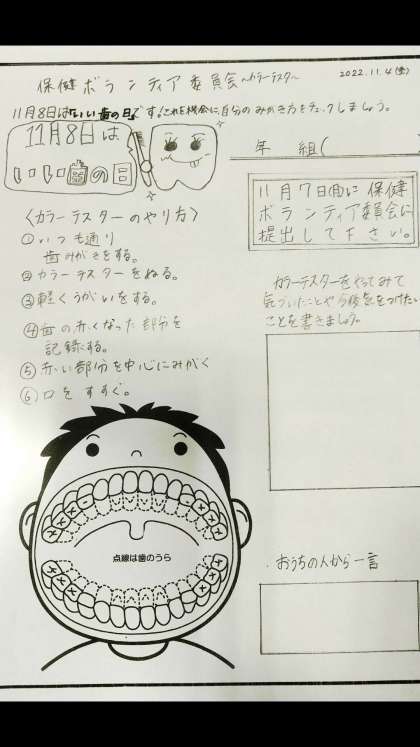 保健ボランティア委員会～カラーテスタ～
2022.11.4(金)
11月8日は「いい歯の日」です!これを機会に自分のみがき方をチェックしましょう。
11月8日は
いい歯の日
年 組(
11月7日(月)に保健
ボランティア委員会に
提出して下さい。
〈カラーテスターのやり方〉
①いつも通り
歯みがきをする。
②カラーテスターをぬる。
③軽くうがいをする。
④歯の赤くなった部分を
記録する。
⑤赤い部分を中心にみがく
⑥口をすすぐ。
カラーテスターをやってみて
気づいたことや今後気をつけたい
ことを書きましょう。
点線は歯のうら
・おうちの人から一言